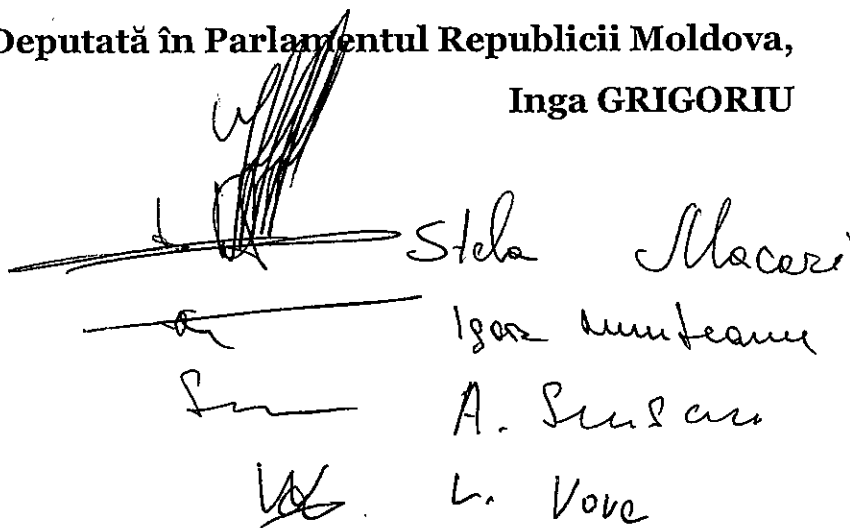 Deputată în Parlamentul Republicii Moldova,
Inga GRIGORIU
Stela Macari
Igor Munteanu
A.
L. Vovc